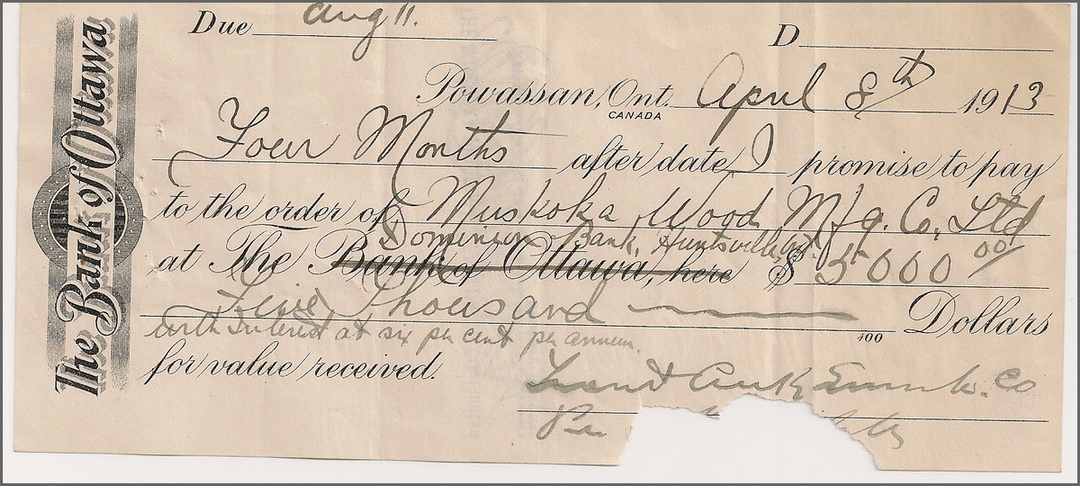 The Bank of Ottawa
Due Aug 11. D
Powassan, Ont. April 8th 1913
CANADA
Four Months after date I promise to pay
to the order of Muskoka Wood Mfg. Co, Ltd
Dominion Bank, Huntsville
at The Bank of Ottawa, here $ 5000 00/
Five Thousand 100 Dollars
with Interest at six per cent per annum.
for value received.
Co
Per